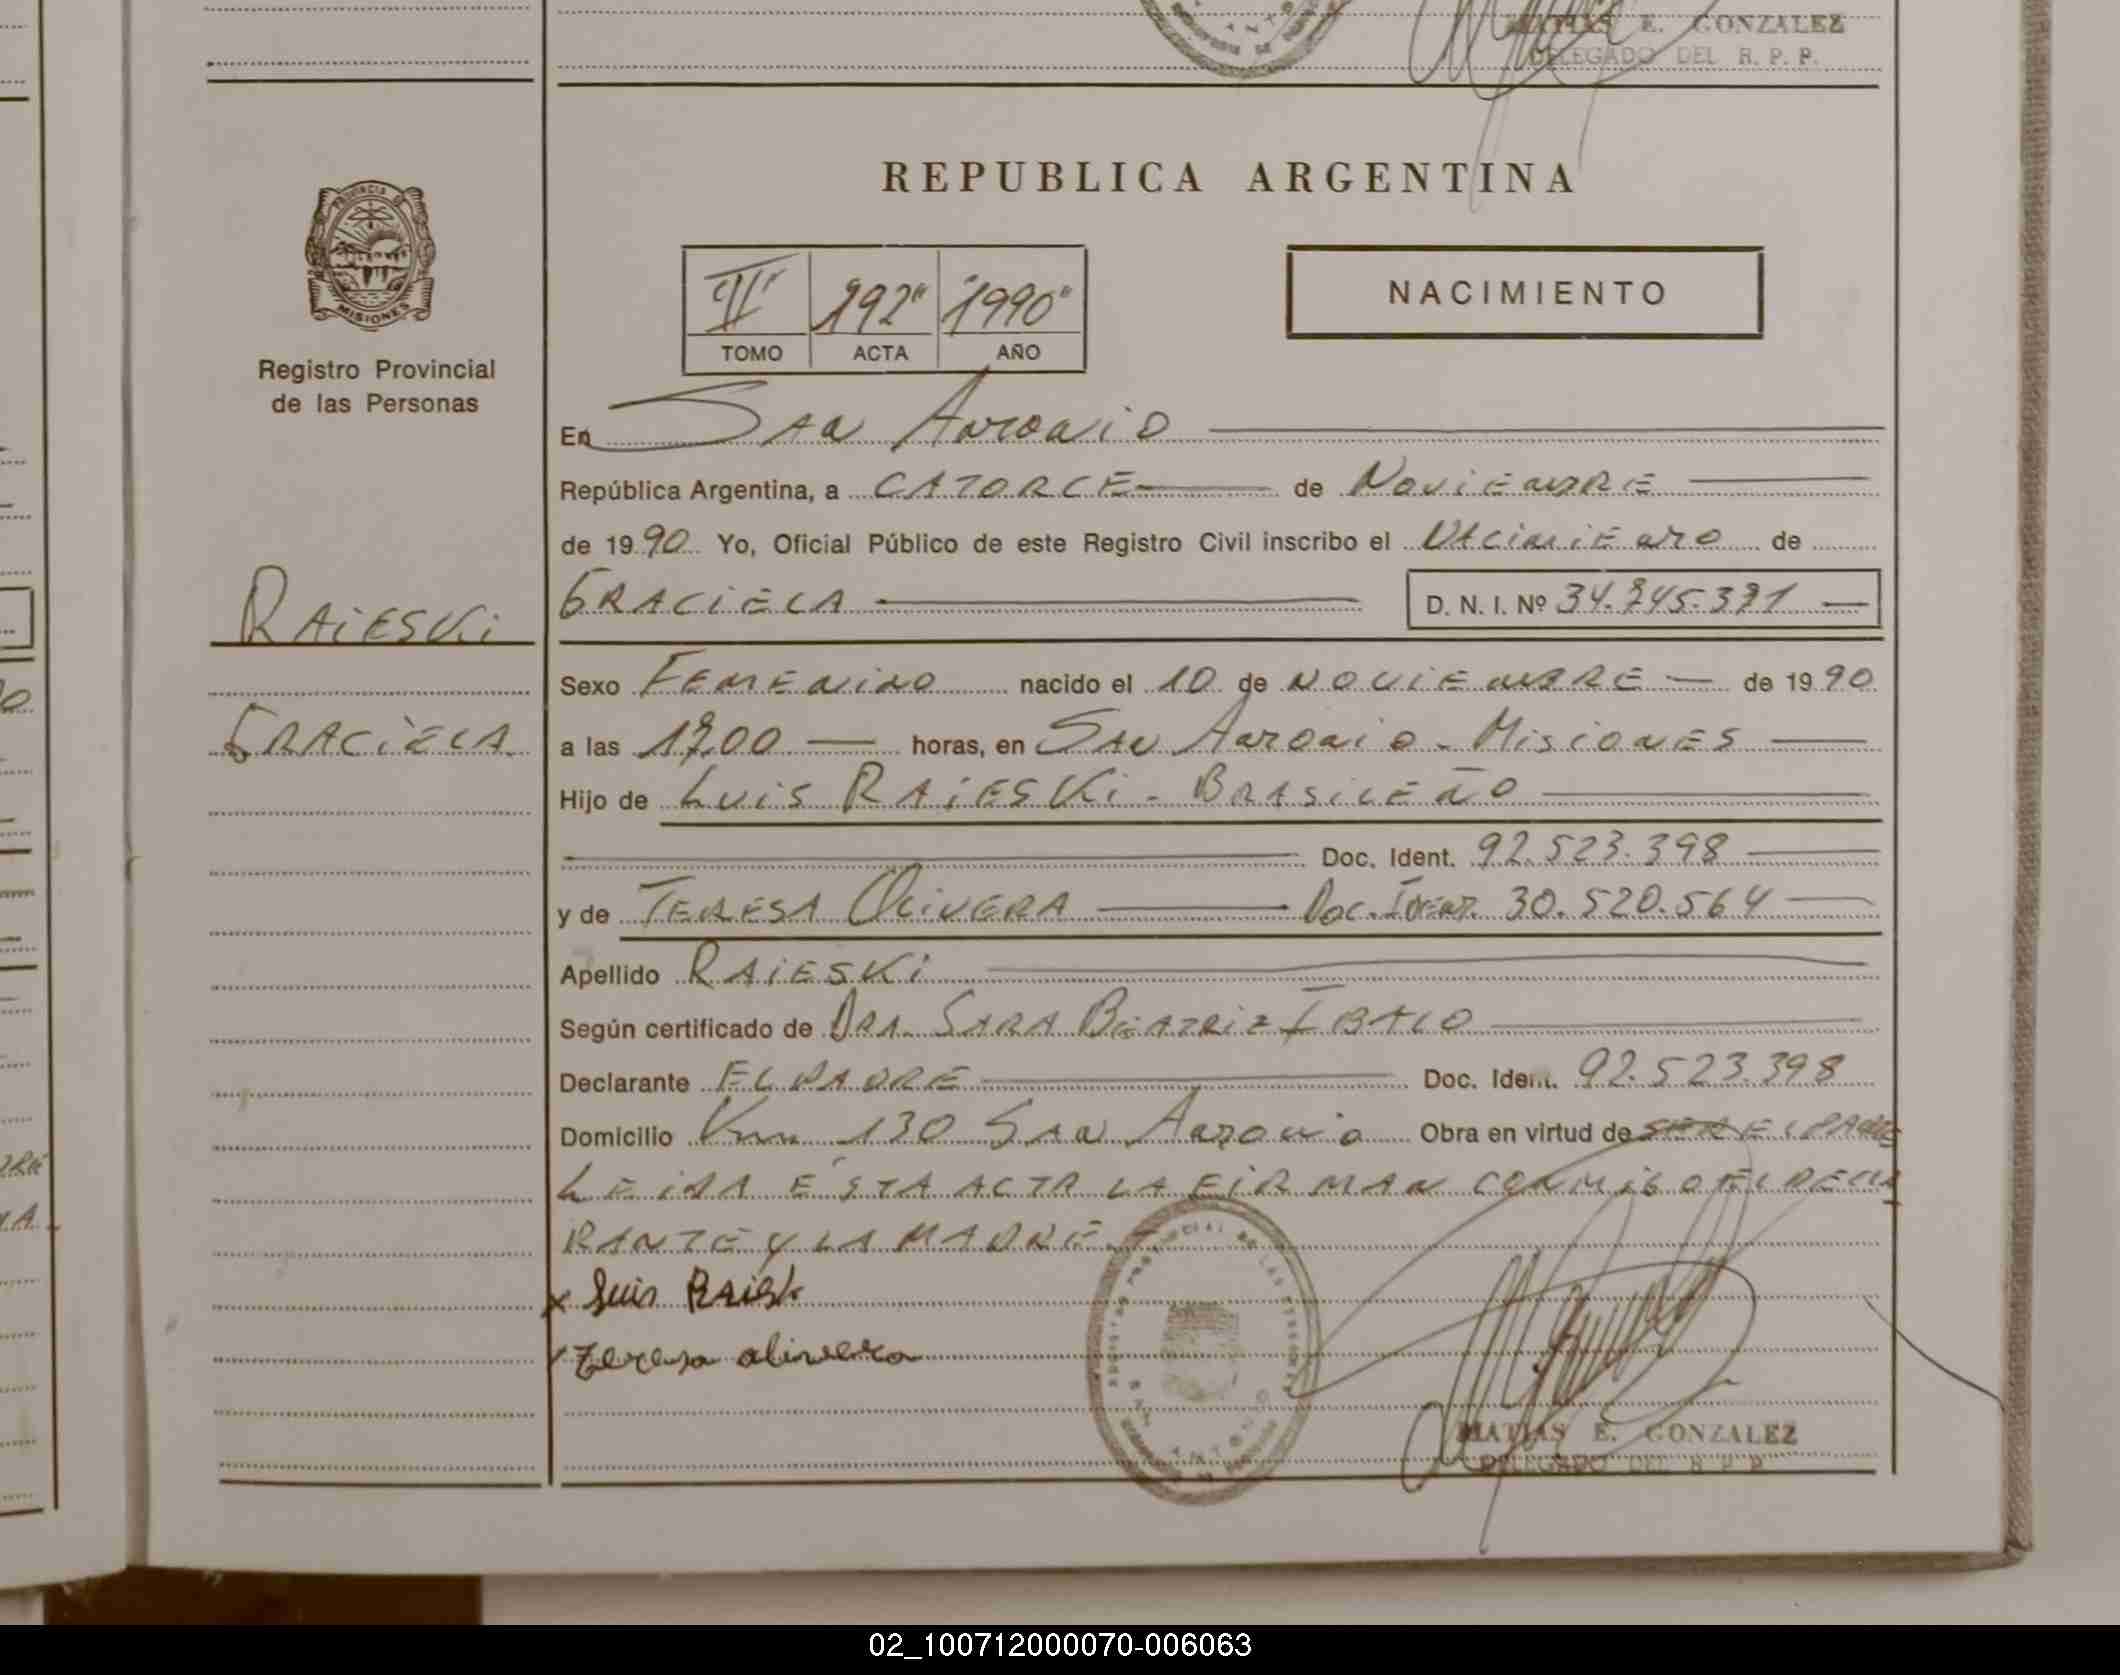 MATIAS E. GONZALEZ
DELEGADO DEL R. P. P.
PROVINCIA DE
MISIONES
Registro Provincial
de las Personas
RAiESKi
GRACiELA
REPUBLICA ARGENTINA
II 192" "1990"
TOMO ACTA AÑO
NACIMIENTO
En San Antonio
República Argentina, a CATORCE de NoviEMBRE
de 1990 Yo, Oficial Público de este Registro Civil inscribo el NAciMiEnto de
GRACiELA D. N. I. Nº
Sexo FEMENiNO nacido el 10 de NOViEMBRE de 1990
a las horas, en SAN Antonio - MisionES
Hijo de Luis RAiESKi - BRASiLEÑO
Doc. Ident. 92.523.398
y de TERESA OLiVERA Doc. IDENT. 30.520.564
Apellido RAiESKi
Según certificado de DRA. SARA BEATRiz IBALO
Declarante EL PADRE Doc. Ident. 92.523.398
Domicilio Km 130 SAN Antonio Obra en virtud de SER EL PADRE
LEiDA ESTA ACTA LA FiRMAN CONMiGO EL DECLA
RANTE Y LA MADRE.
x Luis
x Teresa olivera
MATIAS E. GONZALEZ
DELEGADO DEL R P P
02_100712000070-006063